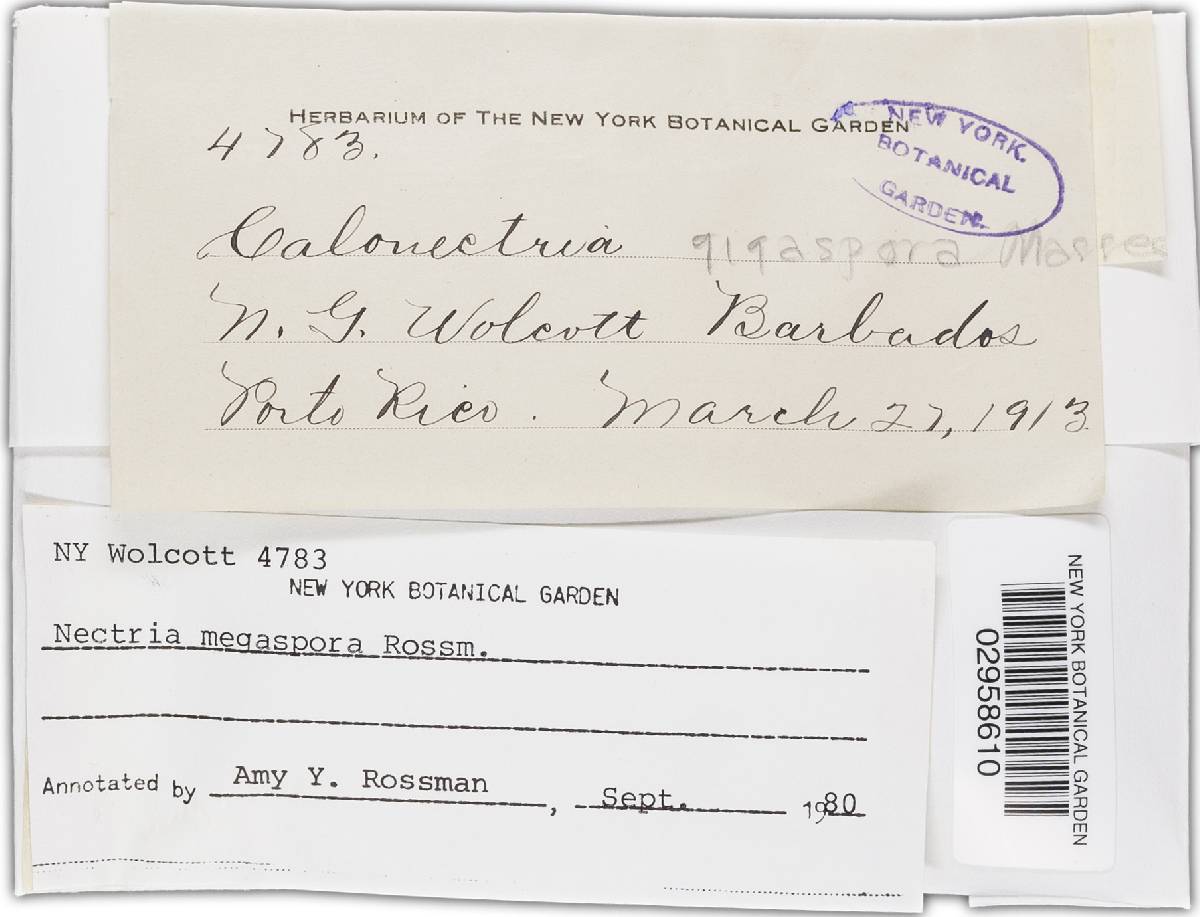 HERBARIUM OF THE NEW YORK BOTANICAL GARDEN
4783.
NEW YORK.
BOTANICAL
GARDEN.
Calonectria gigaspora Massee
N. G. Wolcott Barbados
Porto Rico. March 27, 1913
NY Wolcott 4783
NEW YORK BOTANICAL GARDEN
Nectria megaspora Rossm.
Annotated by Amy Y. Rossman, Sept. 1980
NEW YORK BOTANICAL GARDEN
02958610